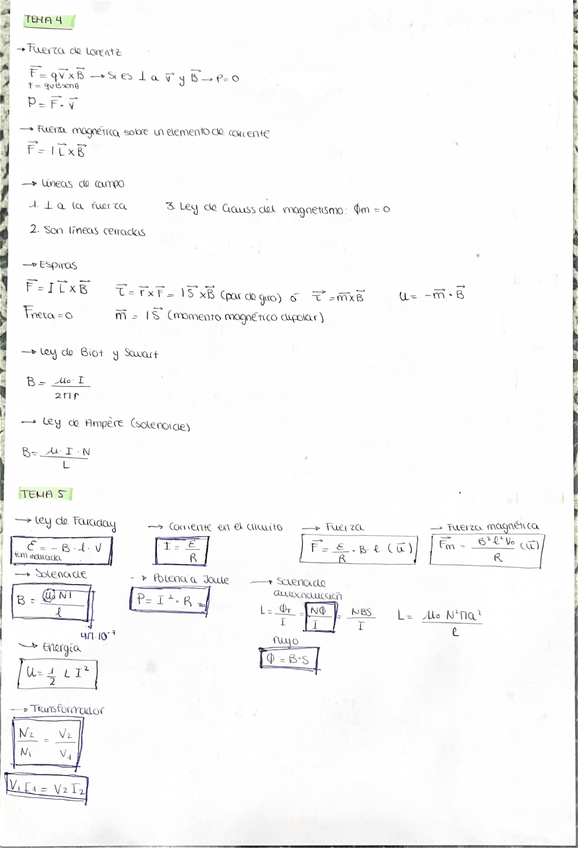 TEMA 4
→ Fuerza de Lorentz
F⃗ = qv⃗ x B⃗ → Si es ⊥ a v⃗ y B⃗ → P = 0
F = qvBsenθ
P = F⃗ · v⃗
→ Fuerza magnética sobre un elemento de corriente
F⃗ = I L⃗ x B⃗
→ Líneas de campo
1. ⊥ a la fuerza 3. Ley de Gauss del magnetismo: ϕm = 0
2. Son líneas cerradas
→ Espiras
F⃗ = I L⃗ x B⃗ τ⃗ = r⃗ x F⃗ = I S⃗ x B⃗ (par de giro) ó τ⃗ = m⃗ x B⃗ U = -m⃗ · B⃗
Fneta = 0 m⃗ = I S⃗ (momento magnético dipolar)
→ Ley de Biot y Savart
B = μ₀ · I / 2πr
→ Ley de Ampère (solenoide)
B = μ · I · N / L
TEMA 5
→ Ley de Faraday → Corriente en el circuito → Fuerza → Fuerza magnética
ℰ = -B · l · v I = ℰ / R F⃗ = ℰ / R · B · l (u⃗) F⃗m = B² l² V₀ / R (u⃗)
fem inducida
→ Solenoide → Potencia Joule → Solenoide
autoinducción
B = μ N I / l P = I² · R = L = ϕT / I = Nϕ / I = NBS / I L = μ₀ N² π a² / l
4π·10⁻⁷
→ Energía flujo
U = 1/2 L I² ϕ = B · S
→ Transformador
N₂ / N₁ = V₂ / V₁
V₁ I₁ = V₂ I₂